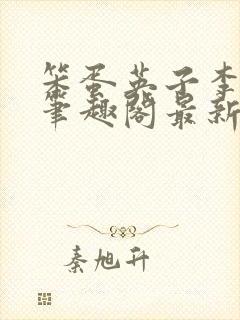 笨蛋英子李
笔趣阁最新
秦旭升